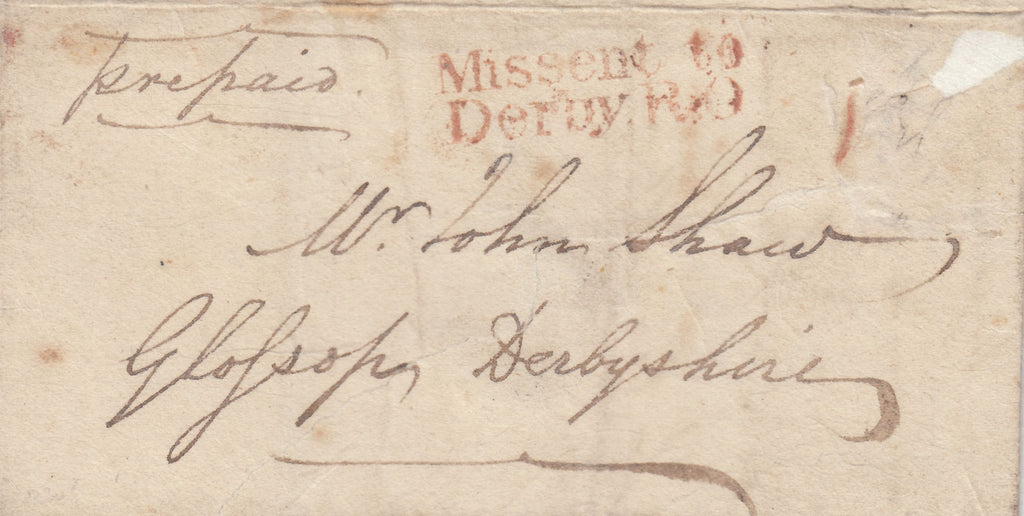 prepaid.
Missent to
Derby R.O
1
Mr. John Shaw
Gloſsop, Derbyshire